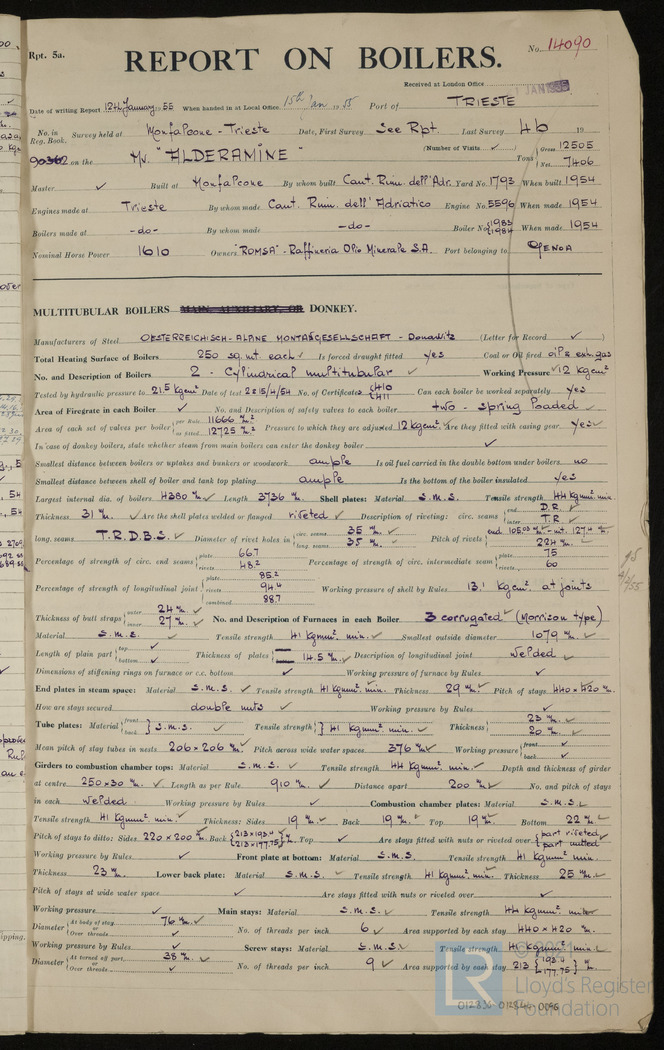 Rpt. 5a.
REPORT ON BOILERS.
No. 14090
Received at London Office
Date of writing Report 12th January 1955 When handed in at Local Office 15th Jan 1955 Port of TRIESTE
No. in Reg. Book. Survey held at Monfalcone - Trieste Date, First Survey See Rpt. Last Survey 4b 19
(Number of Visits ✓)
90362 on the Mv. "ALDERAMINE" Tons { Gross 12505 Net 7406
Master ✓ Built at Monfalcone By whom built Cant. Riun. dell'Adr. Yard No. 1793 When built 1954
Engines made at Trieste By whom made Cant. Riun. dell'Adriatico Engine No. 5596 When made 1954
Boilers made at -do- By whom made -do- Boiler No. {1983 1984 When made 1954
Nominal Horse Power 1610 Owners "ROMSA" - Raffineria Olio Minerale S.A. Port belonging to GENOA
MULTITUBULAR BOILERS MAIN, AUXILIARY, OR DONKEY.
Manufacturers of Steel OESTERREICHISCH-ALPINE MONTANGESELLSCHAFT - Donawitz (Letter for Record ✓)
Total Heating Surface of Boilers 250 sq. mt. each ✓ Is forced draught fitted yes Coal or Oil fired oil & exh. gas
No. and Description of Boilers 2 - Cylindrical multitubular ✓ Working Pressure 12 Kg cm²
Tested by hydraulic pressure to 21.5 Kg cm² Date of test 22 15/4/54 No. of Certificates {410 411 Can each boiler be worked separately yes
Area of Firegrate in each Boiler ✓ No. and Description of safety valves to each boiler two - spring loaded ✓
Area of each set of valves per boiler { per Rule 11666 m.² as fitted 12725 m.² Pressure to which they are adjusted 12 Kg cm² Are they fitted with easing gear yes ✓
In case of donkey boilers, state whether steam from main boilers can enter the donkey boiler ✓
Smallest distance between boilers or uptakes and bunkers or woodwork ample Is oil fuel carried in the double bottom under boilers no
Smallest distance between shell of boiler and tank top plating ample Is the bottom of the boiler insulated yes
Largest internal dia. of boilers 4380 m. ✓ Length 3736 m. Shell plates: Material S.M.S. Tensile strength 44 Kg mm² min.
Thickness 31 m. ✓ Are the shell plates welded or flanged riveted ✓ Description of riveting: circ. seams { end D.R. inter. T.R. ✓
long. seams T.R.D.B.S. ✓ Diameter of rivet holes in { circ. seams 35 m. ✓ long. seams 35 m. ✓ Pitch of rivets { end 105.03 m. - int. 127.4 m. 224 m. ✓
Percentage of strength of circ. end seams { plate 66.7 rivets 48.2 Percentage of strength of circ. intermediate seam { plate 75 rivets 60
Percentage of strength of longitudinal joint { plate 85.2 rivets 94.4 combined 88.7 Working pressure of shell by Rules 13.1 Kg cm² at joints
Thickness of butt straps { outer 24 m. ✓ inner 27 m. ✓ No. and Description of Furnaces in each Boiler 3 corrugated ✓ (Morrison type)
Material S.M.S. ✓ Tensile strength 41 Kg mm² min. Smallest outside diameter 1079 m. ✓
Length of plain part { top ✓ bottom ✓ Thickness of plates 14.5 m. ✓ Description of longitudinal joint welded ✓
Dimensions of stiffening rings on furnace or c.c. bottom ✓ Working pressure of furnace by Rules ✓
End plates in steam space: Material S.M.S. ✓ Tensile strength 41 Kg mm² min. Thickness 29 m. ✓ Pitch of stays 440 x 420 m.
How are stays secured double nuts ✓ Working pressure by Rules ✓
Tube plates: Material { front back } S.M.S. ✓ Tensile strength { 41 Kg mm² min. ✓ Thickness { 23 m. ✓ 20 m. ✓
Mean pitch of stay tubes in nests 206 x 206 m. Pitch across wide water spaces 376 m ✓ Working pressure { front ✓ back ✓
Girders to combustion chamber tops: Material S.M.S. ✓ Tensile strength 44 Kg mm² min. Depth and thickness of girder
at centre 250 x 30 m. ✓ Length as per Rule 910 m. ✓ Distance apart 200 m ✓ No. and pitch of stays
in each welded Working pressure by Rules ✓ Combustion chamber plates: Material S.M.S. ✓
Tensile strength 41 Kg mm² min. Thickness: Sides 19 m. ✓ Back 19 m. Top 19 m. Bottom 22 m.
Pitch of stays to ditto: Sides 220 x 200 m. Back {213 x 193.4 213 x 177.75 m. Top ✓ Are stays fitted with nuts or riveted over {part riveted ✓ part nutted
Working pressure by Rules ✓ Front plate at bottom: Material S.M.S. Tensile strength 41 Kg mm² min.
Thickness 23 m. Lower back plate: Material S.M.S. ✓ Tensile strength 41 Kg mm² min. Thickness 25 m. ✓
Pitch of stays at wide water space ✓ Are stays fitted with nuts or riveted over ✓
Working pressure ✓ Main stays: Material S.M.S. ✓ Tensile strength 44 Kg mm² min ✓
Diameter { At body of stay, or Over threads 76 m. ✓ No. of threads per inch 6 ✓ Area supported by each stay 440 x 420 m.
Working pressure by Rules ✓ Screw stays: Material S.M.S. ✓ Tensile strength 41 Kg mm² min. ✓
Diameter { At turned off part or Over threads 38 m. ✓ No. of threads per inch 9 ✓ Area supported by each stay 213 {193.4 177.75} m.
© 2021
LR
Lloyd's Register
Foundation
012836-012844-0096